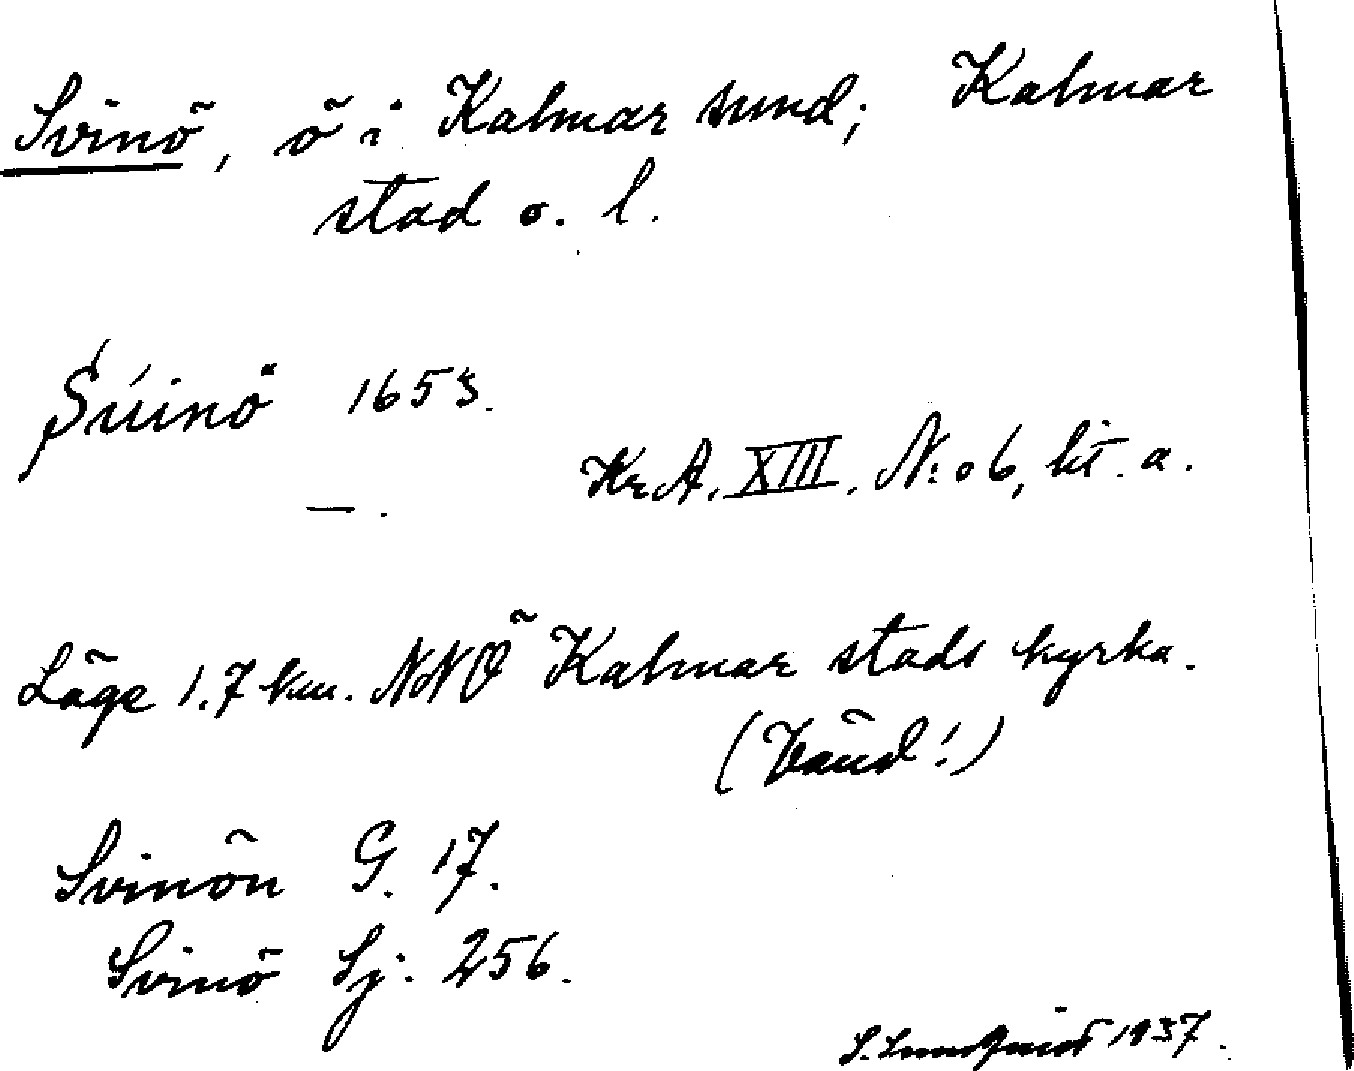 Svinö, ö i Kalmar sund; Kalmar
stad o. l.
Súinö 1653.
—. Kr A. XIII. N:o 6, lit. a.
Läge 1.7 km. NNÖ Kalmar stads kyrka.
(Vänd!)
Svinön G. 17.
Svinö Sj. 256.
S. Lundqvist 1937.